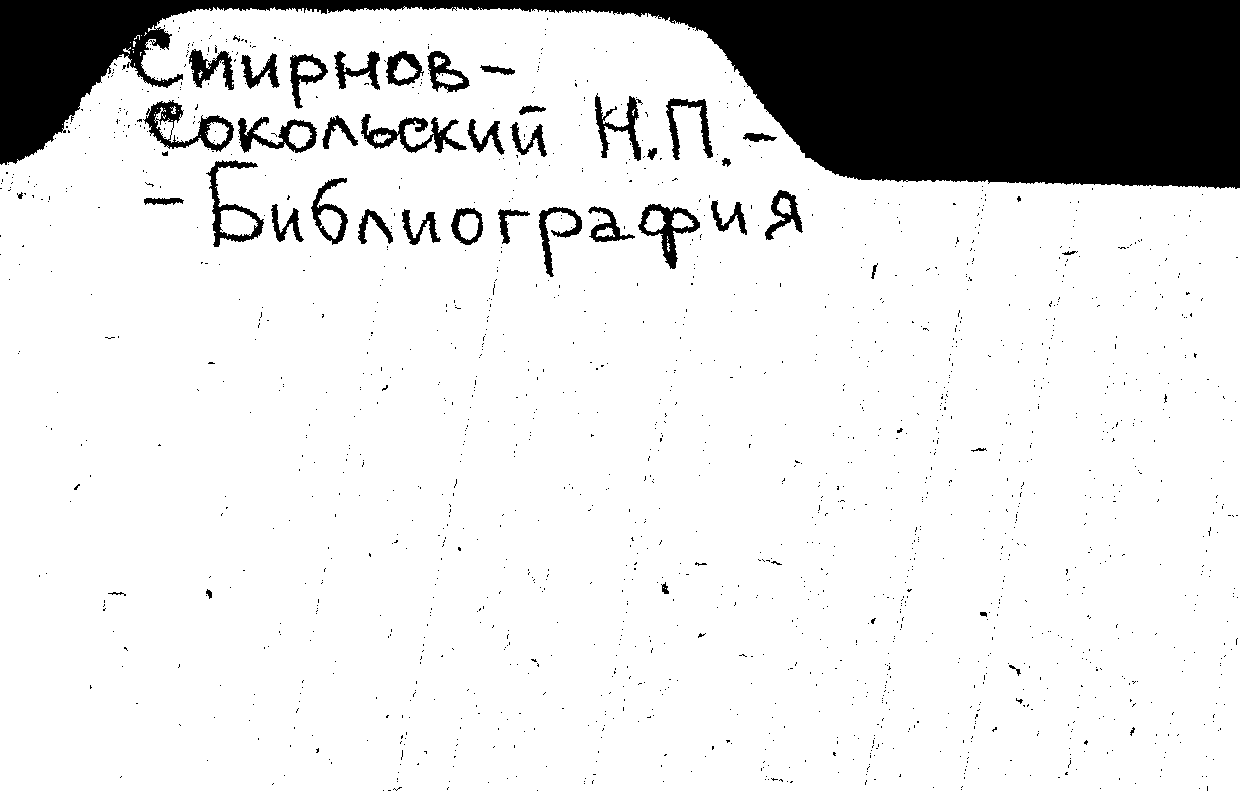 Смирнов-
Сокольский Н.П. -
- Библиография